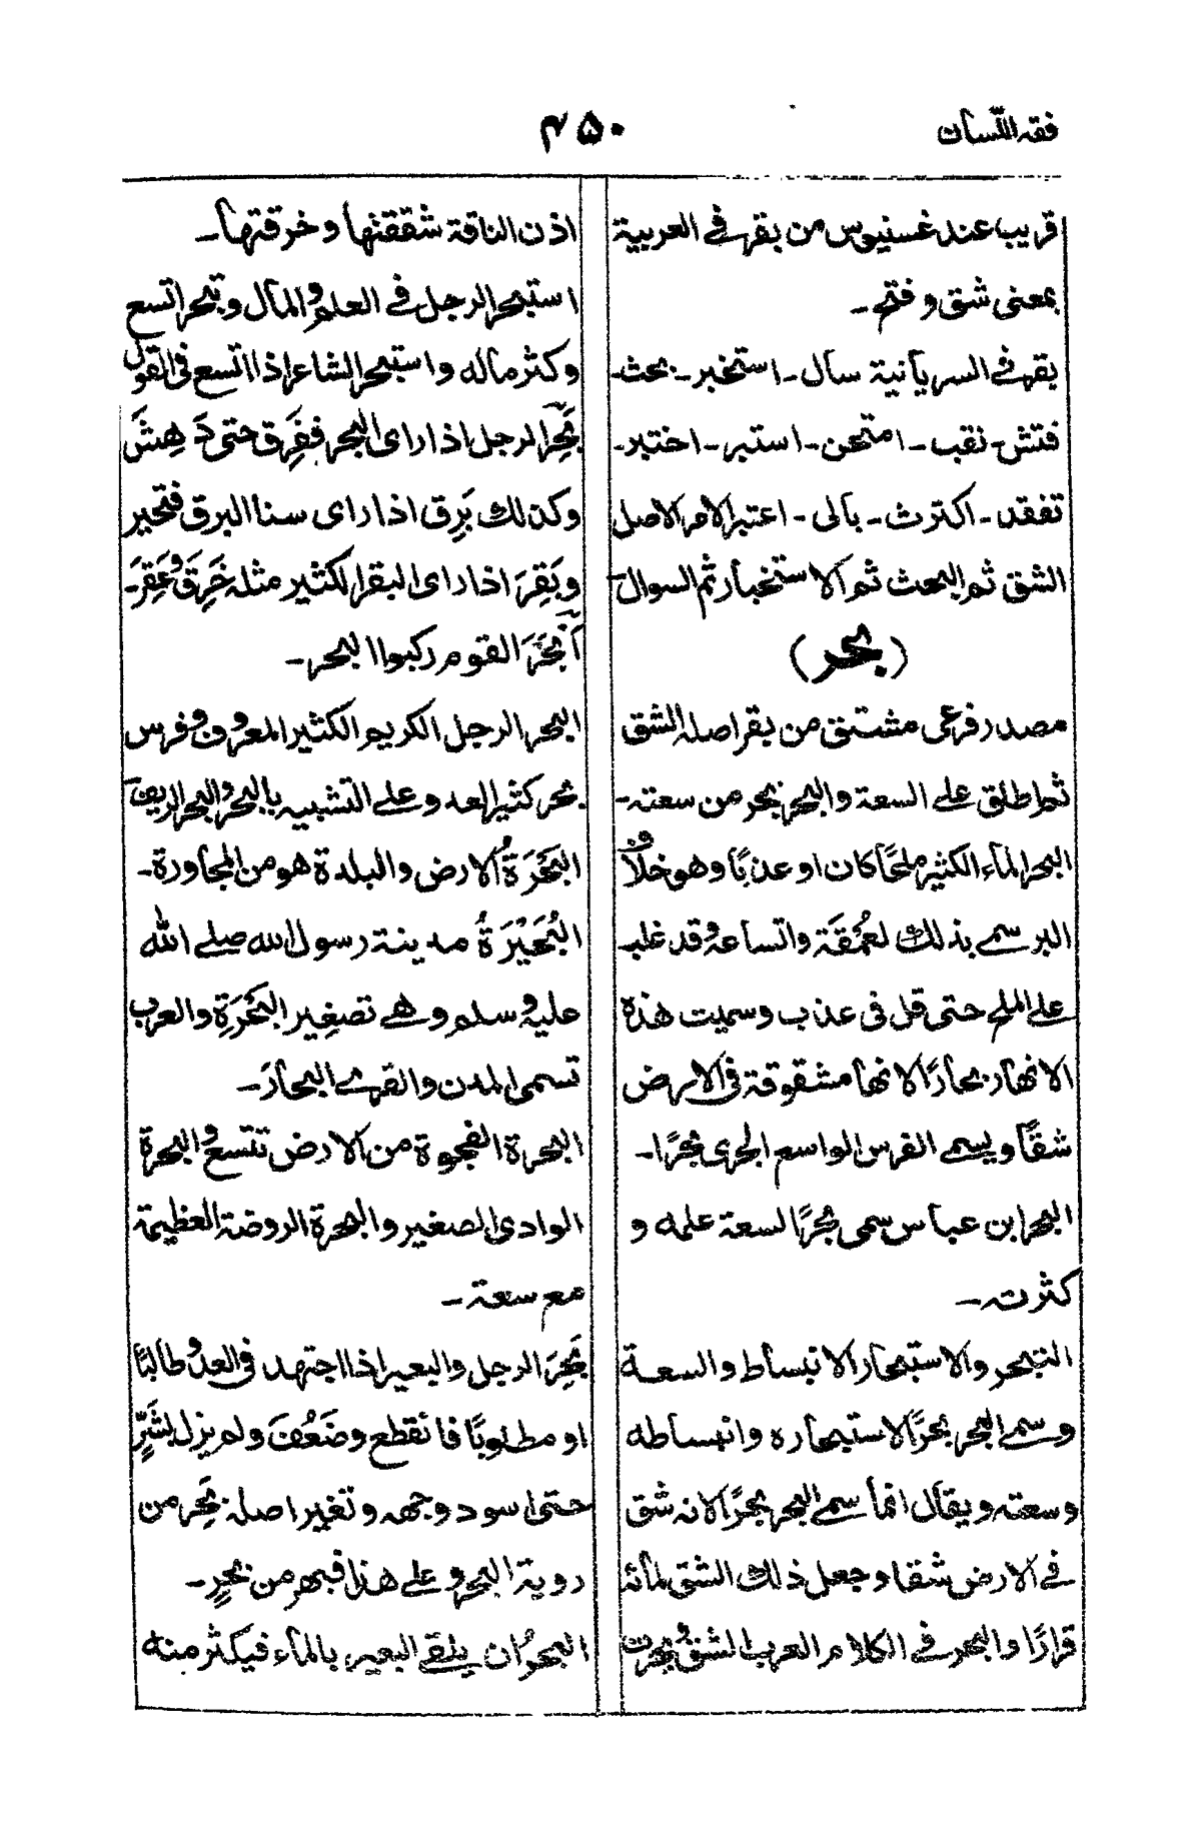 فقه اللّسان
۴۵۰
قريب عند غسنيوس من بقر في العربية
بمعنى شق و فتح ـ
بقر في السريانية سأل ـ استخبر ـ بحث ـ
فتش ـ نقب ـ امتحن ـ استبر ـ اختبر ـ
تفقد ـ اكترث ـ بالى ـ اعتبر الامر الاصل
الشق ثم البحث ثم الاستخبار ثم السوال ـ
(بحر)
مصدر فرعى مشتق من بقر اصله الشق
ثم اطلق على السعة والبحر بحر من سعته ـ
البحر الماء الكثير ملحًا كان او عذبًا وهو خلاف
البر سمى بذلك لعُمقَة واتساعه وقد غلب
على الملح حتى قل فى عذب وسميت هذه
الانهار بحارًا لانها مشقوقة فى الارض
شقًا ويسمى الفرس الواسع الجرى بحرًا ـ
البحر ابن عباس سمى بحرًا لسعة علمه و
كثرته ـ
التبحر والاستبحار الانبساط والسعة
وسمى البحر بحرًا لاستبحاره وانبساطه
وسعته ويقال انما سمى البحر بحرًا لانه شق
فى الارض شقا وجعل ذلك الشق لمائه
قرارًا والبحر فى الكلام العرب الشق وبحرت
اذن الناقة شققتها وخرقتها ـ
استبحر الرجل فى العلم والمال وتبحر اتسع
وكثر ماله واستبحر الشاعر اذا اتسع فى القول
بَحِرَ الرجل اذا راى البحر ففَرِق حتى دَهِشَ
وكذلك بَرِق اذا راى سنا البرق فتحير
وبَقِرَ اذا راى البقر الكثير مثله خَرِقَ وعَقِرَ ـ
اَبْحَرَ القوم ركبوا البحر ـ
البحر الرجل الكريم الكثير المعروف وفرس
بحر كثير العد وعلى التشبيه بالبحر والبحر الريف
البَحْرَةُ الارض والبلدة هو من المجاورة ـ
البُحَيْرَةُ مدينة رسول الله صلى الله
عليه وسلم وهى تصغير البَحْرَةِ والعرب
تسمى المدن والقرى البحارَ ـ
البحرة الفجوة من الارض تتسع والبحرة
الوادى الصغير والبحرة الروضة العظيمة
مع سعة ـ
بَحِرَ الرجل والبعير اذا اجتهد فى العدو طالبًا
او مطلوبًا فانقطع وضَعُفَ ولم يزل بشَرٍّ
حتى اسود وجهه وتغير اصله بَحِر من
روية البحر وعلى هذا فبحر من بحرٍ ـ
البحرُ ان يلقى البعير بالماء فيكثر منه